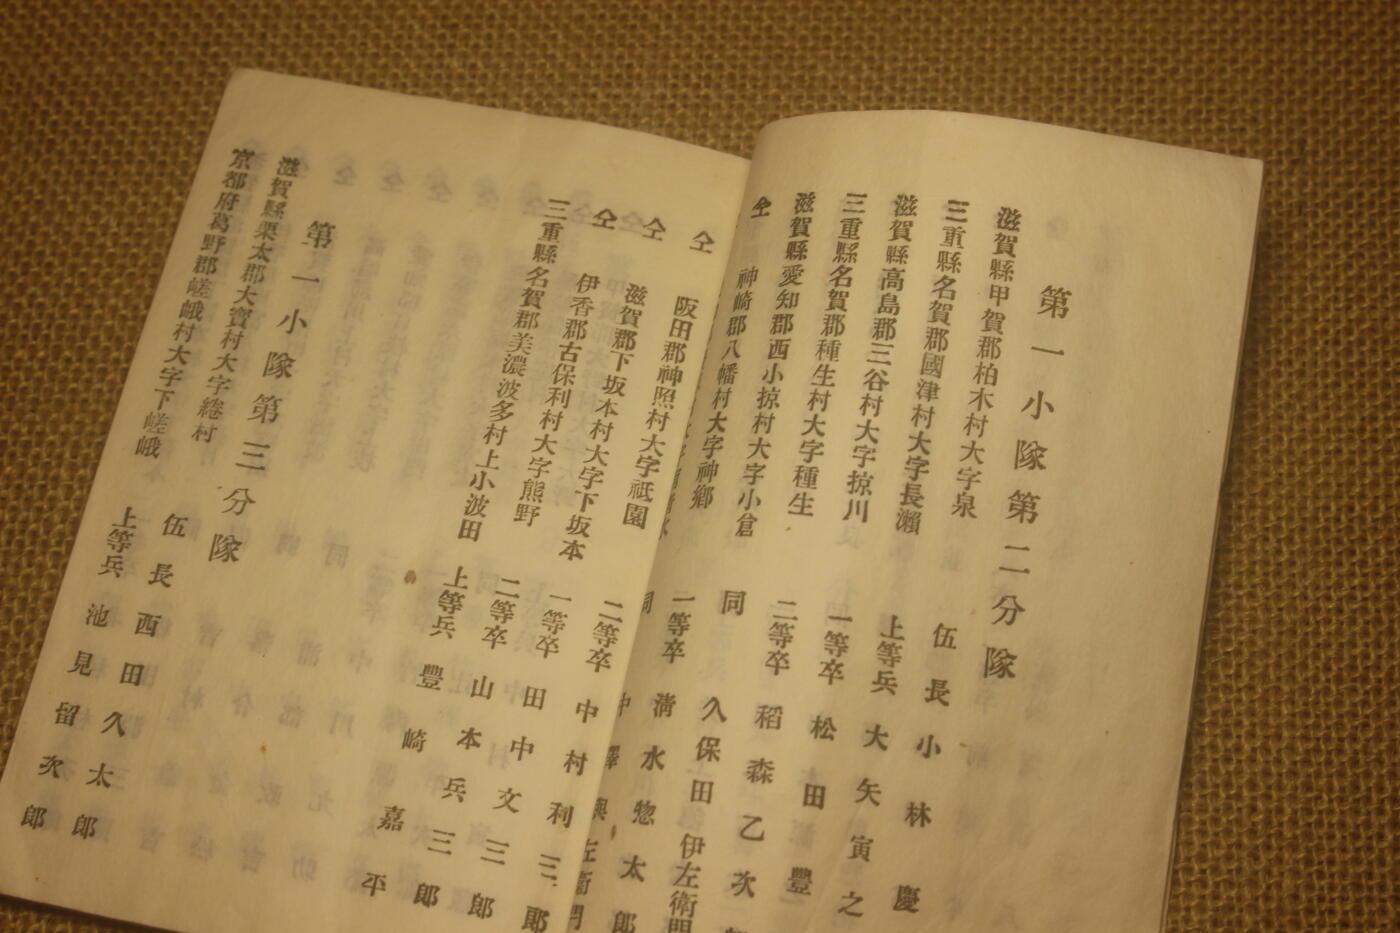 第一小隊第二分隊
滋賀縣甲賀郡柏木村大字泉 伍長 小林慶
三重縣名賀郡國津村大字長瀨 上等兵 大矢寅之
滋賀縣高島郡三谷村大字掠川 一等卒 松田豐
三重縣名賀郡種生村大字種生 二等卒 稻森乙次
滋賀縣愛知郡西小掠村大字小倉 同 久保田伊左衛門
仝 神崎郡八幡村大字神鄉 一等卒 淸水惣太郎
同
仝 阪田郡神照村大字祇園 二等卒 中村利三郎
仝 滋賀郡下坂本村大字下坂本 一等卒 田中文三郎
仝 伊香郡古保利村大字熊野 二等卒 山本兵三郎
三重縣名賀郡美濃波多村上小波田 上等兵 豐崎嘉平
第一小隊第三分隊
滋賀縣栗太郡大寶村大字綣村 伍長 西田久太郎
京都府葛野郡嵯峨村大字下嵯峨 上等兵 池見留次郎